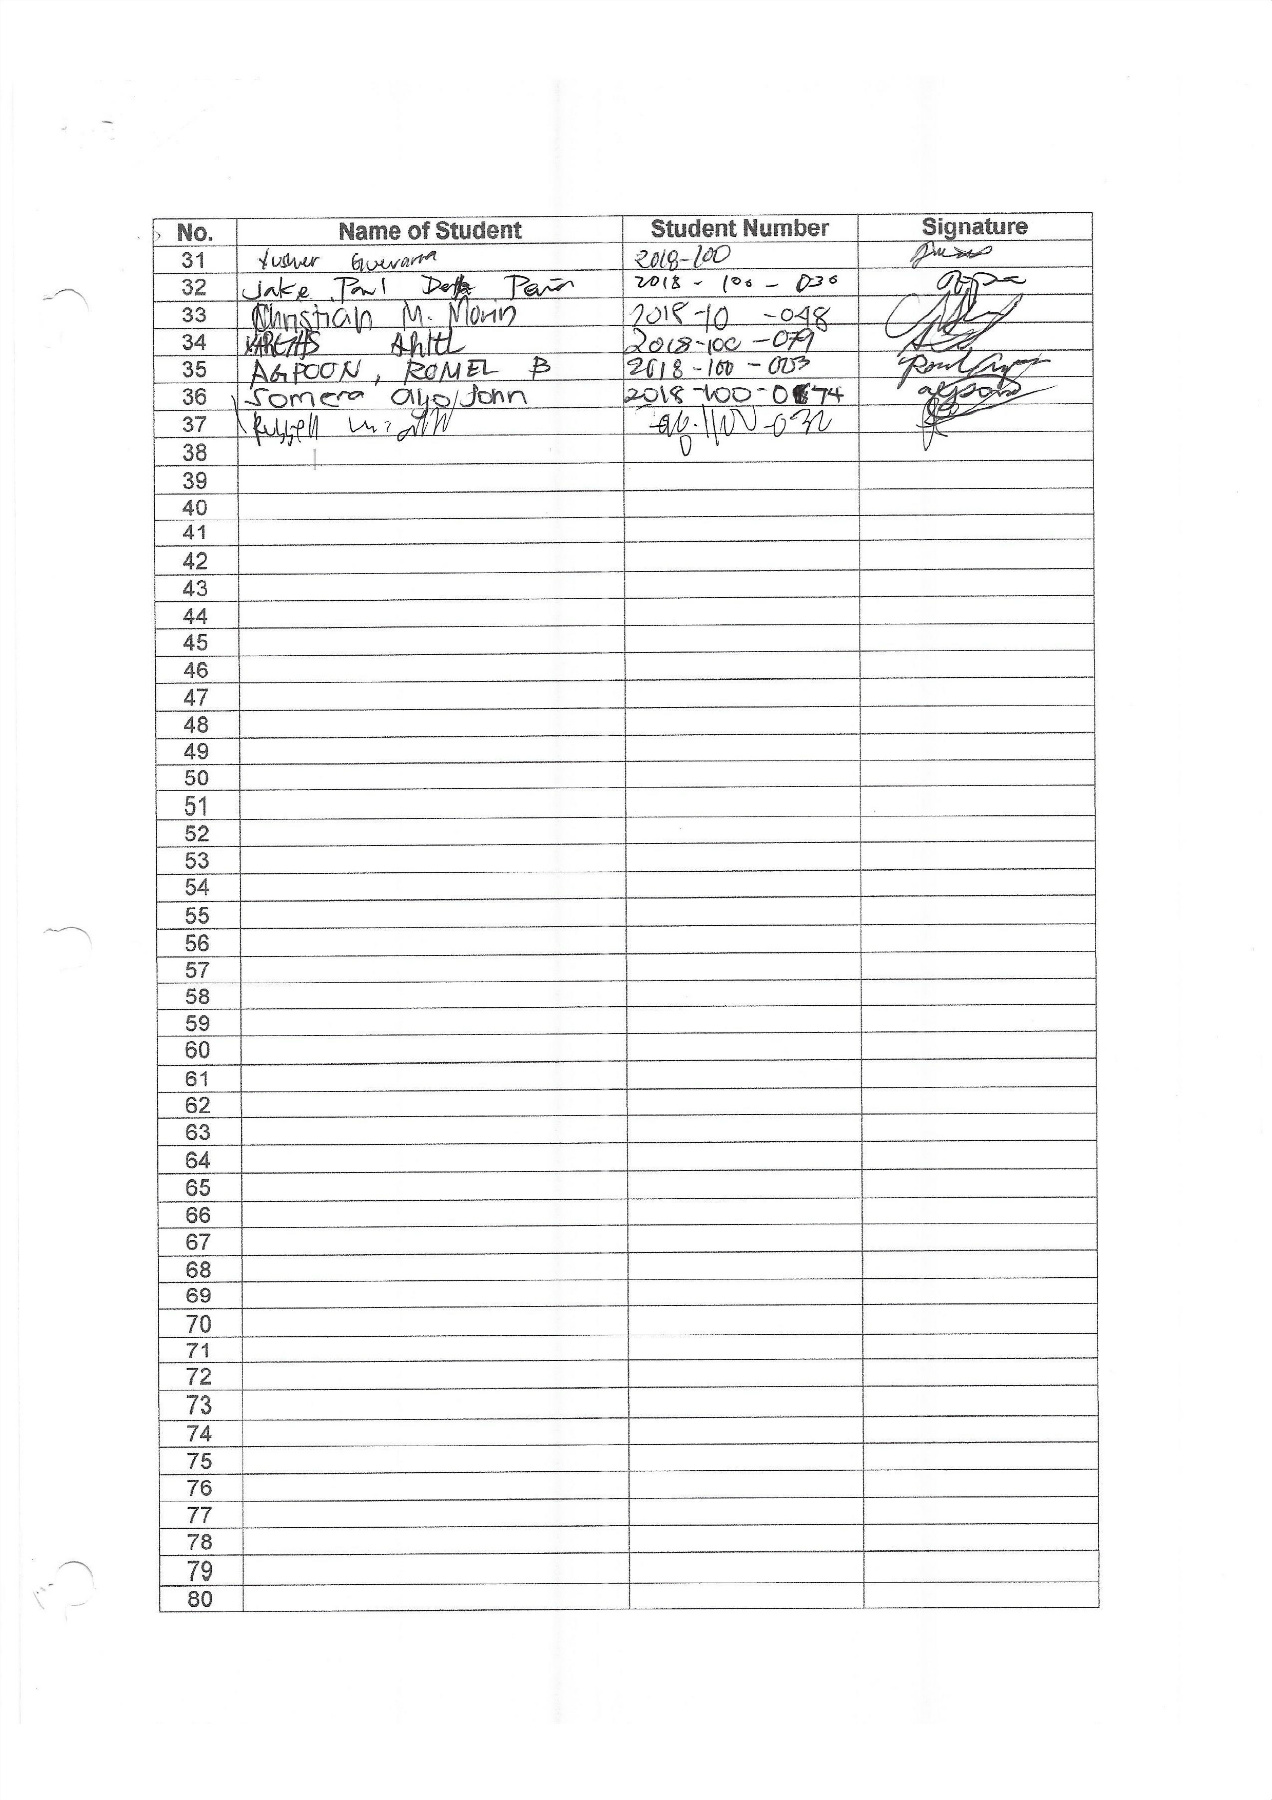 No. Name of Student Student Number Signature
31 Guevarra 2018-100
32 Jake Paul Dela Peña 2018 - 100 - 030
33 Christian M. Morin 2018-10 -048
34 2018-100 -079
35 AGPOON, ROMEL B 2018 -100 - 003
36 Somera John 2018-100-0 74
37 Russell -032
38
39
40
41
42
43
44
45
46
47
48
49
50
51
52
53
54
55
56
57
58
59
60
61
62
63
64
65
66
67
68
69
70
71
72
73
74
75
76
77
78
79
80